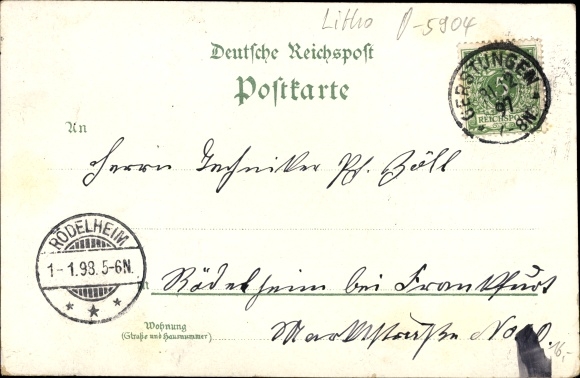 Litho
Deutsche Reichspost
Postkarte
GERSTUNGEN
REICHSPOST
An
Herrn Techniker Pf. Zöll
RÖDELHEIM
1-1.98.5-6N.
in Rödelheim bei Frankfurt
Wohnung
(Straße und Hausnummer)
Marktstraße No
16,-